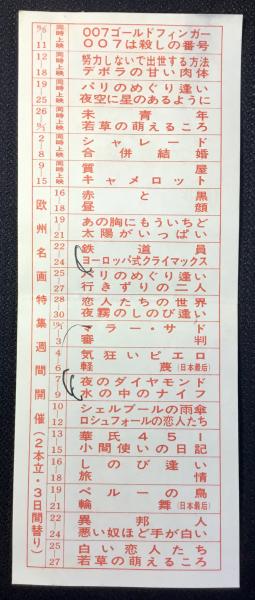 9/5-11 同時上映 007ゴールドフィンガー
007は殺しの番号
12-18 同時上映 努力しないで出世する方法
デボラの甘い肉体
19-25 同時上映 パリのめぐり逢い
夜空に星のあるように
26-10/1 同時上映 未青年
若草の萌えるころ
2-8 同時上映 シャレード
合併結婚
9-15 同時上映 質屋
キャメロット
欧州名画特集週間開催(2本立・3日間替り)
16-18 赤と黒
昼顔
19-21 あの胸にもういちど
太陽がいっぱい
22-24 鉄道員
ヨーロッパ式クライマックス
25-27 パリのめぐり逢い
行きずりの二人
28-30 恋人たちの世界
夜霧のしのび逢い
3 マラー・サド
審判
4-6 気狂いピエロ
軽蔑(日本最后)
7-9 夜のダイヤモンド
水の中のナイフ
10-12 シェルブールの雨傘
ロシュフォールの恋人たち
13-15 華氏451
小間使いの日記
16-18 しのび逢い
旅情
19-21 ペルーの鳥
輪舞(日本最后)
22-24 異邦人
悪い奴ほど手が白い
25-27 白い恋人たち
若草の萌えるころ